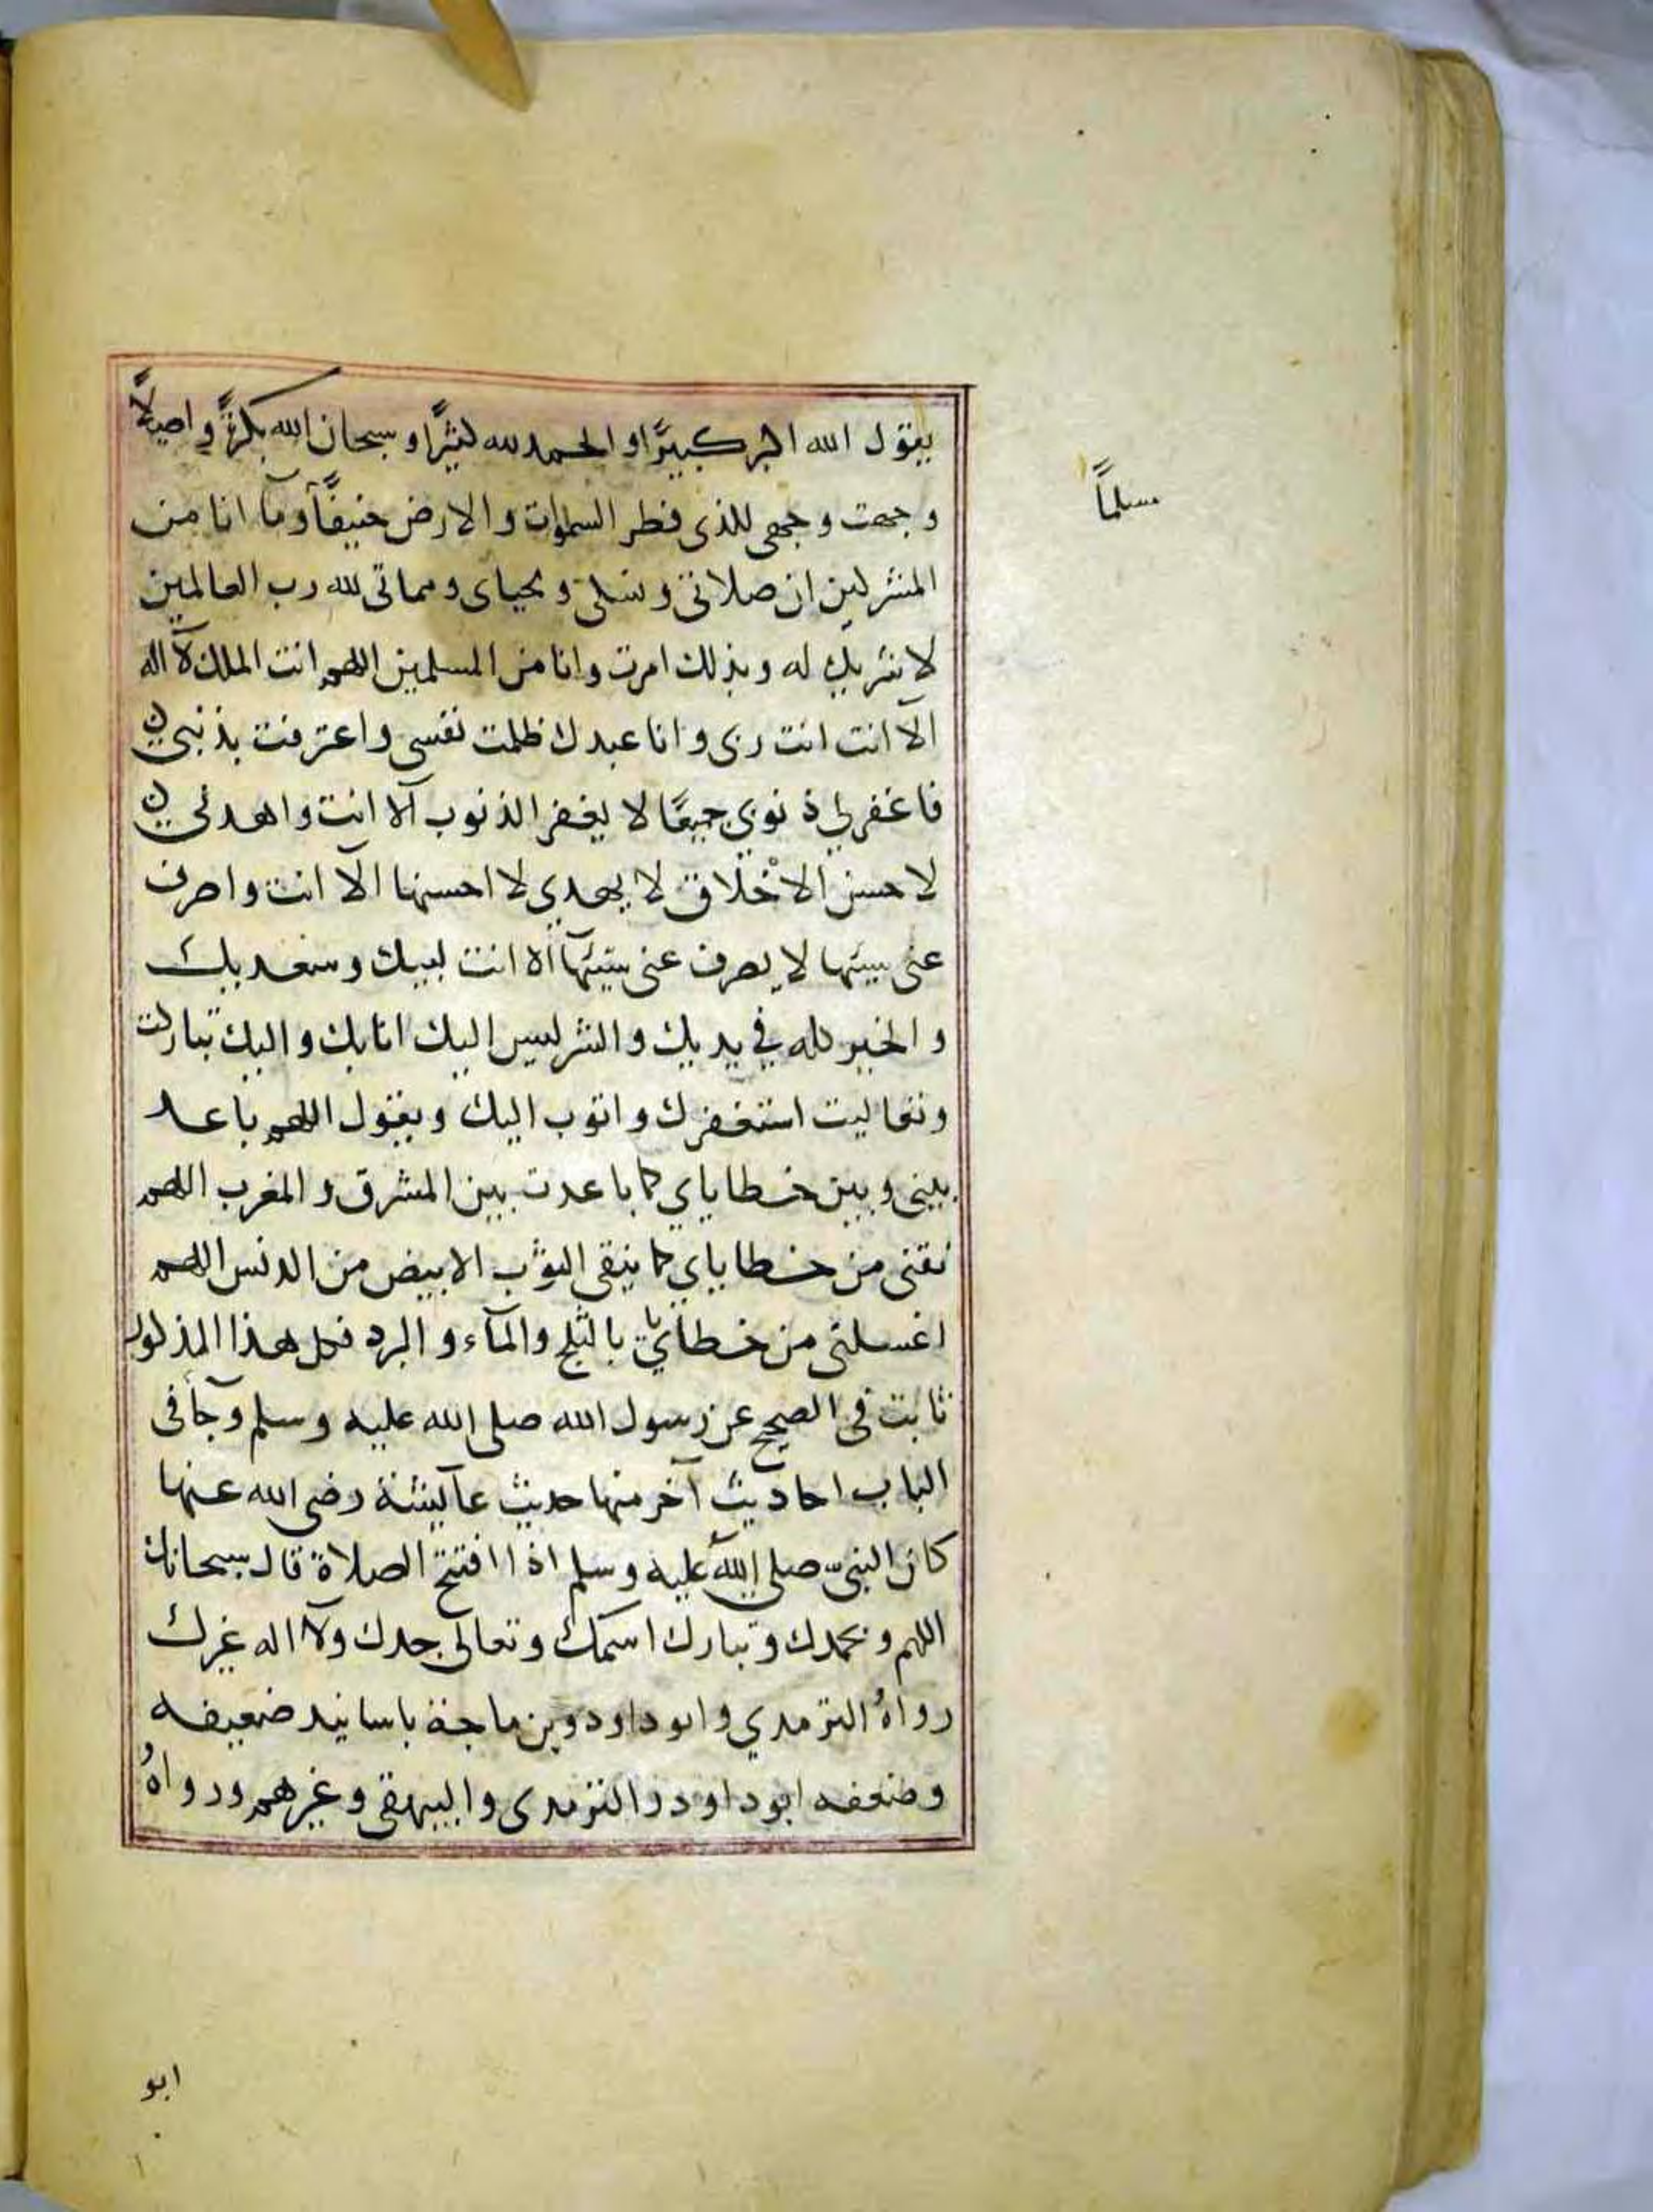 يقول الله اكبر كبيرًا والحمد لله كثيرًا وسبحان الله بكرةً واصيلاً
وجهت وجهي للذى فطر السموات والارض حنيفًا وما انا من
مسلمًا
المشركين ان صلاتى ونسكى ومحياى ومماتى لله رب العالمين
لا شريك له وبذلك امرت وانا من المسلمين اللهم انت الملك لآ اله
الآ انت انت ربى وانا عبدك ظلمت نفسي واعترفت بذنبي
فاغفرلي ذنوبي جميعًا لا يغفر الذنوب آلا انت واهدنى
لاحسن الاخلاق لا يهدي لا احسنها الآ انت واصرف
عنى سيئها لا يصرف عنى سيئهآ الا انت لبيك وسعديك
والخير كله في يديك والشر ليس اليك انا بك واليك تباركت
وتعاليت استغفرك واتوب اليك ويقول اللهم باعد
بيني وبين خطاياي كما باعدت بين المشرق والمغرب اللهم
نقنى من خطاياي كما ينقى الثوب الابيض من الدنس اللهم
اغسلنى من خطاياي بالثلج والمآء والبرد فكل هذا المذكور
ثابت في الصحيح عن رسول الله صلى الله عليه وسلم وجآ فى
الباب احاديث آخر منها حديث عآئيشة رضى الله عنها
كان النبىّ صلى الله عليه وسلم اذا افتتح الصلاة قال سبحانك
اللهم وبحمدك وتبارك اسمك وتعالى جدك ولآ اله غيرك
رواهُ الترمدي وابو داود وبن ماجة باسانيد ضعيفه
وضعفه ابو داود والترمدى والبيهقى وغيرهم ورواهُ
ابو